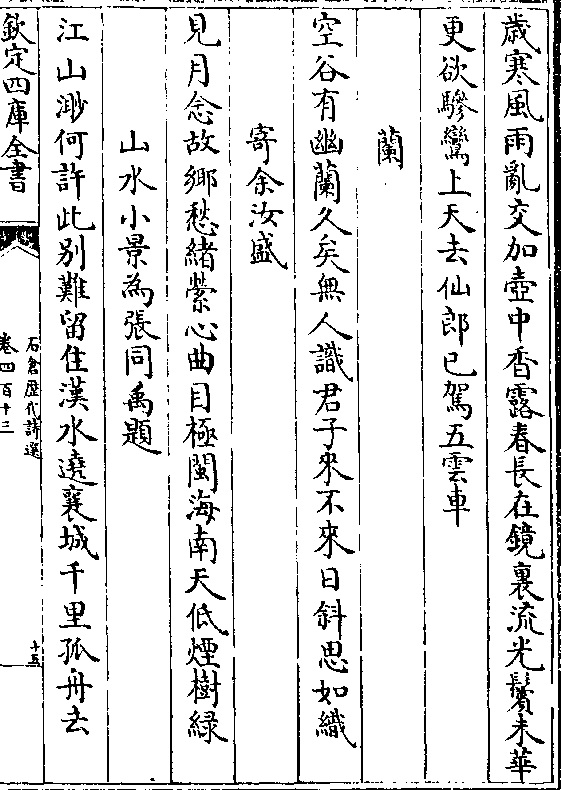 歲寒風雨亂交加壺中香露春長在鏡裏流光鬢未華
更欲驂鸞上天去仙郎已駕五雲車
蘭
空谷有幽蘭久矣無人識君子來不來日斜思如織
寄余汝盛
見月念故鄉愁緒縈心曲目極閩海南天低煙樹緑
山水小景為張同禹題
江山渺何許此别難留住漢水遶襄城千里孤舟去
欽定四庫全書
石倉歴代詩選
卷四百十三
十五